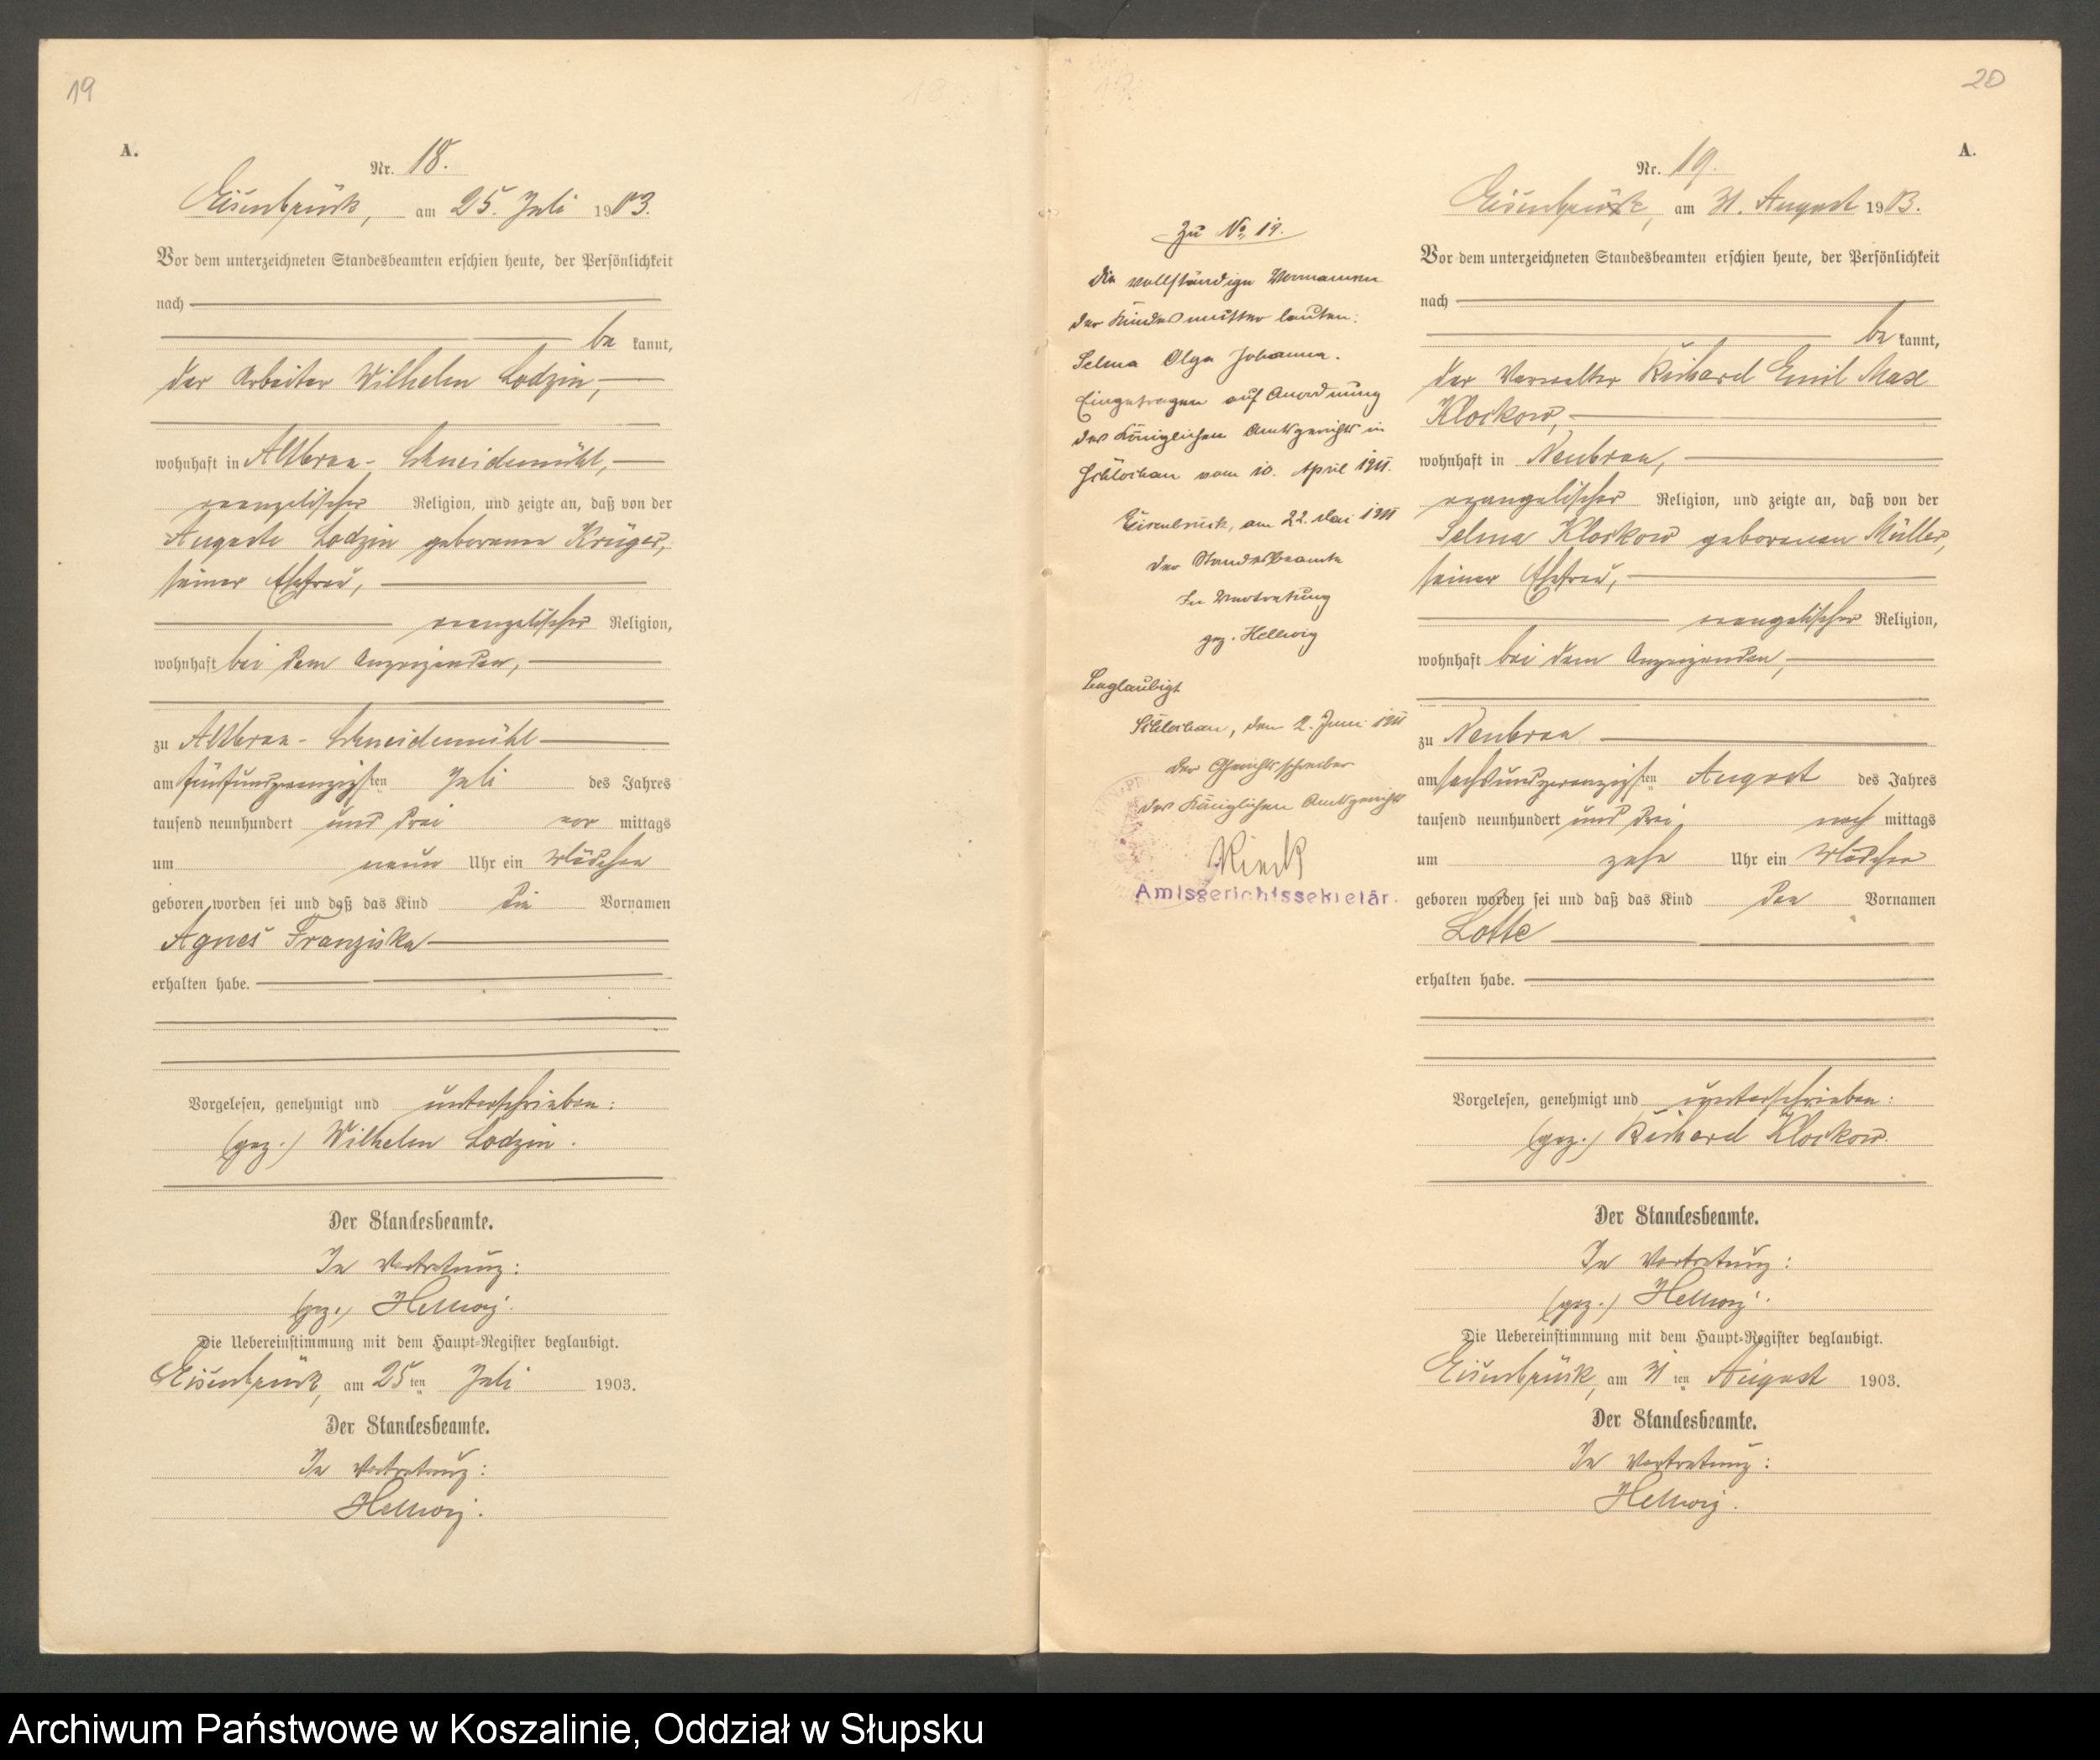 19
A.
Nr. 18.
Eisenbrück, am 25. Juli 1903.
Vor dem unterzeichneten Standesbeamten erschien heute, der Persönlichkeit
nach
be kannt,
der Arbeiter Wilhelm Lodzin,
wohnhaft in Altbraa-Schneidemühl,
evangelischer Religion, und zeigte an, daß von der
Auguste Lodzin geborenen Krüger,
seiner Ehefrau,
evangelischer Religion,
wohnhaft bei dem Anzeigenden,
zu Altbraa-Schneidemühl
am fünfundzwanzigsten Juli des Jahres
tausend neunhundert und drei vor mittags
um neun Uhr ein Mädchen
geboren worden sei und daß das Kind die Vornamen
Agnes Franziska
erhalten habe.
Vorgelesen, genehmigt und unterschrieben:
(gez.) Wilhelm Lodzin.
Der Standesbeamte.
In Vertretung:
(gez.) Hellwig.
Die Uebereinstimmung mit dem Haupt-Register beglaubigt.
Eisenbrück, am 25ten Juli 1903.
Der Standesbeamte.
In Vertretung:
Hellwig.
Zu No. 19.
Die vollständigen Vornamen
der Kindesmutter lauten:
Selma Olga Johanna.
Eingetragen auf Anordnung
des Königlichen Amtsgerichts in
Schlochau vom 10. April 1911.
Eisenbrück, am 22. Mai 1911
Der Standesbeamte
In Vertretung
gez. Hellwig
Beglaubigt
Schlochau, den 2. Juni 1911
Der Gerichtsschreiber
des Königlichen Amtsgerichts
Amtsgerichtssekretär.
20
A.
Nr. 19.
Eisenbrück, am 31. August 1903.
Vor dem unterzeichneten Standesbeamten erschien heute, der Persönlichkeit
nach
be kannt,
der Verwalter Richard Emil Max
Klockow,
wohnhaft in Neubraa,
evangelischer Religion, und zeigte an, daß von der
Selma Klockow geborenen Müller,
seiner Ehefrau,
evangelischer Religion,
wohnhaft bei dem Anzeigenden,
zu Neubraa
am sechsundzwanzigsten August des Jahres
tausend neunhundert und drei, nach mittags
um zehn Uhr ein Mädchen
geboren worden sei und daß das Kind den Vornamen
Lotte
erhalten habe.
Vorgelesen, genehmigt und unterschrieben:
(gez.) Richard Klockow.
Der Standesbeamte.
In Vertretung:
(gez.) Hellwig.
Die Uebereinstimmung mit dem Haupt-Register beglaubigt.
Eisenbrück, am 31ten August 1903.
Der Standesbeamte.
In Vertretung:
Hellwig.
Archiwum Państwowe w Koszalinie, Oddział w Słupsku